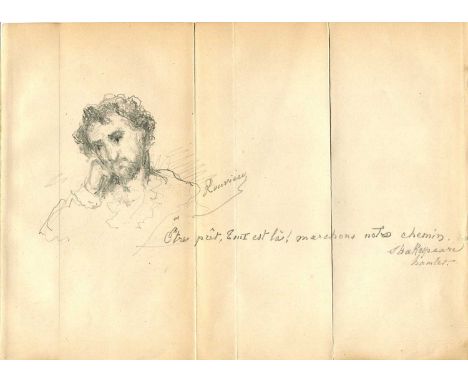 Rouvière
"Être prêt, tout est là! marchons notre chemin.
Shakespeare
hamlet.